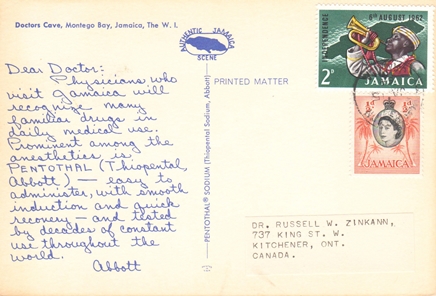 Doctors Cave, Montego Bay, Jamaica, The W. I.
AUTHENTIC JAMAICA
SCENE
Dear Doctor:
Physicians who
visit Jamaica will
recognize many
familiar drugs in
daily medical use.
Prominent among the
anesthetics is
PENTOTHAL (Thiopental,
Abbott) — easy to
administer, with smooth
induction and quick
recovery — and tested
by decades of constant
use throughout the
world.
Abbott
PENTOTHAL® SODIUM (Thiopental Sodium, Abbott)
PRINTED MATTER
INDEPENDENCE
6th AUGUST 1962
2D
JAMAICA
½d
JAMAICA
DR. RUSSELL W. ZINKANN,
737 KING ST. W.
KITCHENER, ONT.
CANADA.